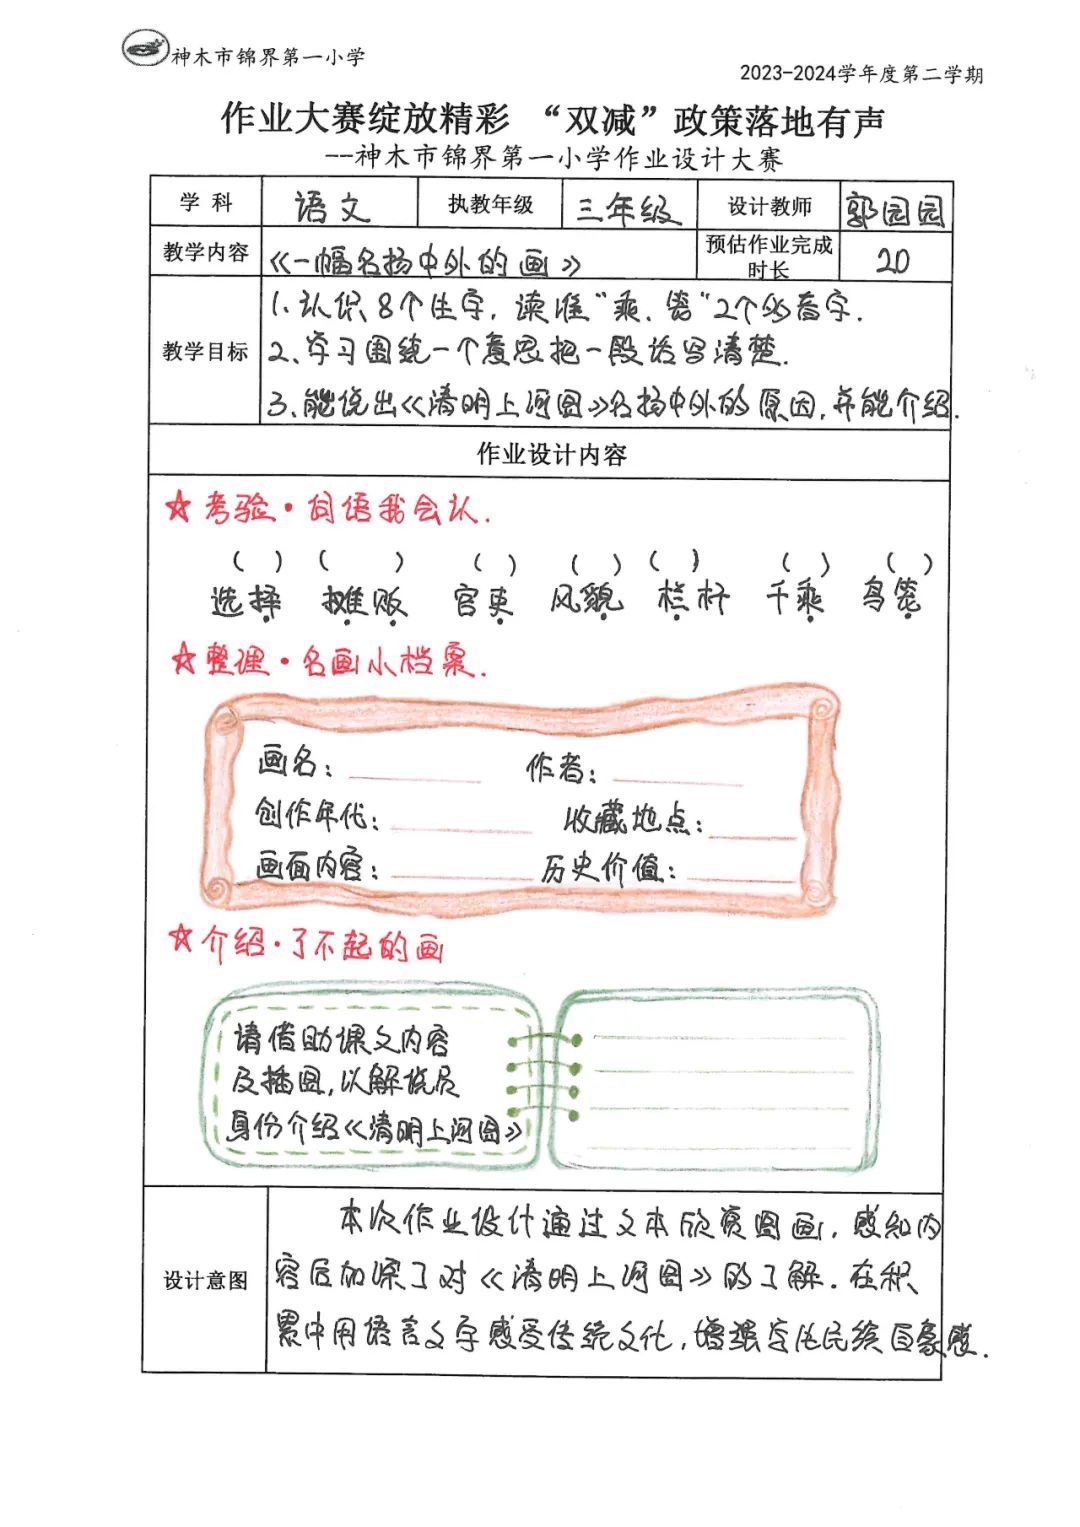 神木市锦界第一小学
2023-2024学年度第二学期
作业大赛绽放精彩 “双减”政策落地有声
--神木市锦界第一小学作业设计大赛
学 科 语文 执教年级 三年级 设计教师 郭园园
教学内容 《一幅名扬中外的画》 预估作业完成时长 20
教学目标
1.认识8个生字，读准“乘、笼”2个多音字.
2、学习围绕一个意思把一段话写清楚.
3、能说出《清明上河图》名扬中外的原因，并能介绍.
作业设计内容
☆考验·词语我会认.
( ) ( ) ( ) ( ) ( ) ( ) ( )
选择 摊贩 官吏 风貌 栏杆 千乘 鸟笼
☆整理·名画小档案.
画名： 作者：
创作年代： 收藏地点：
画面内容： 历史价值：
☆介绍·了不起的画
请借助课文内容
及插图，以解说员
身份介绍《清明上河图》
设计意图
本次作业设计通过文本欣赏图画，感知内
容后加深了对《清明上河图》的了解．在积
累中用语言文字感受传统文化，增强学生民族自豪感.